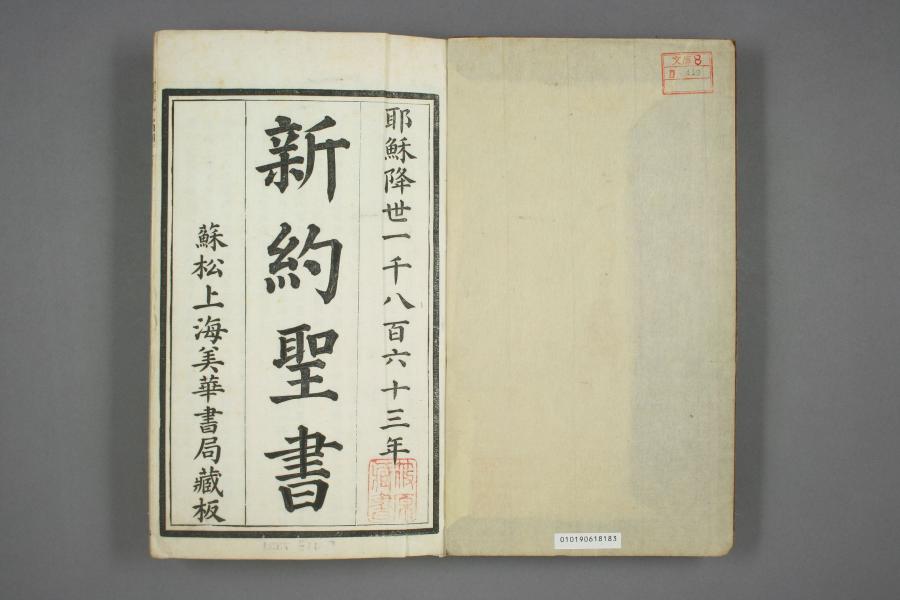 文庫8
耶穌降世一千八百六十三年
新約聖書
蘇松上海美華書局藏板
010190618183